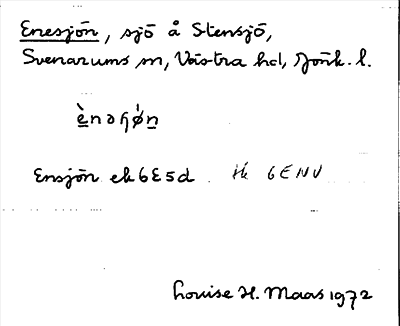 Enesjön, sjö å Stensjö,
Svenarums sn, Västra hd, Jönk. l.
ènəɧø̀n
Ensjön ek 6E5d Hk 6E NV
Louise H. Maas 1972